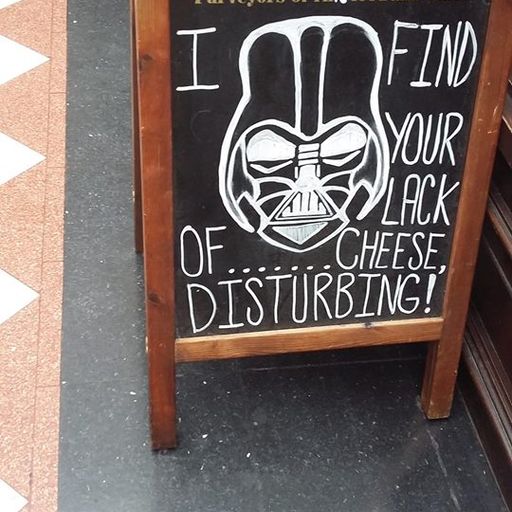 Purveyors of
I FIND
YOUR
LACK
OF.......CHEESE,
DISTURBING!